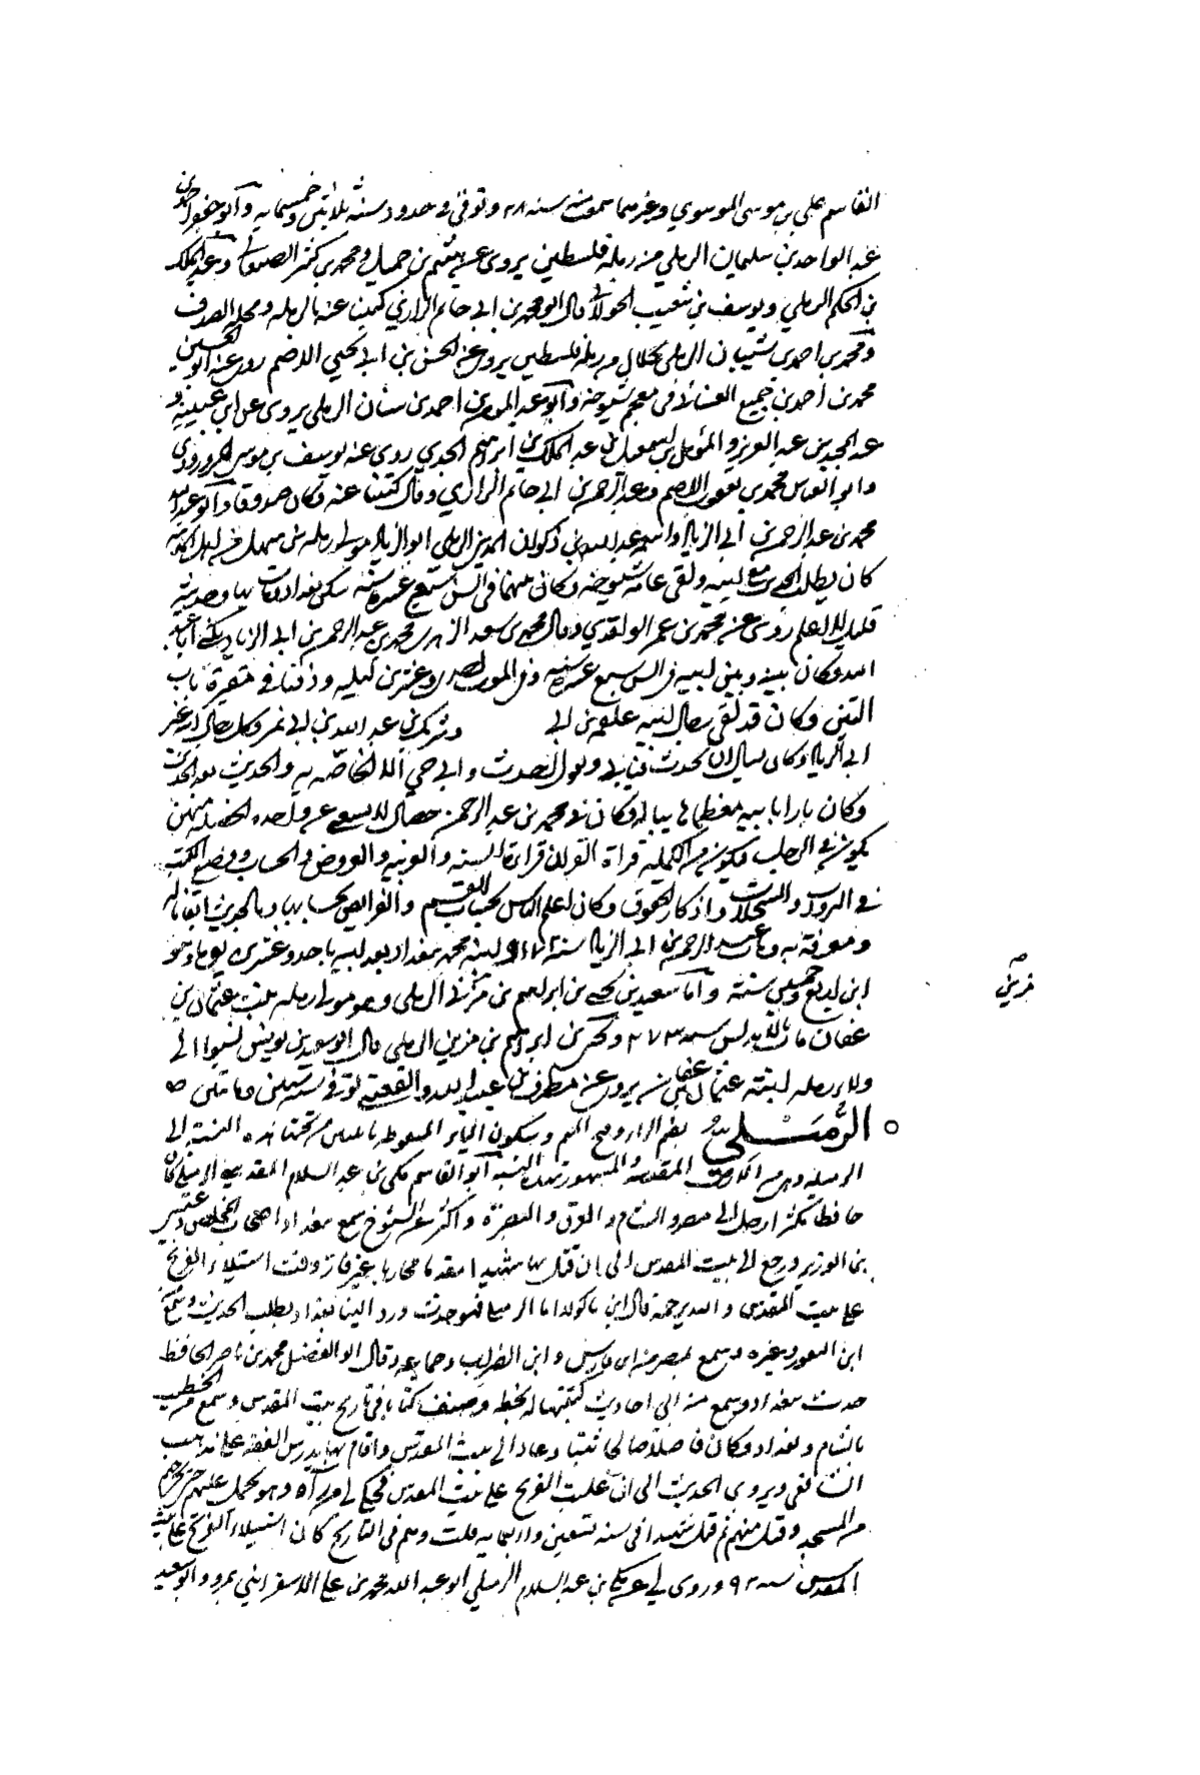 القاسم علي بن موسى الموسوي وغيرهما سمعت منه سنه ٢٨ وتوفي في حدود سنة ثلاثين وخمسمايه وآبو جعفر احمد بن
عبد الواحد بن سليمان الرملي من رملة فلسطين يروي عن هيثم بن جميل ومحمد بن كثير الصنعاني وعبد الملك
بن الحكم الرملي ويوسف بن شعيب الخولاني قال ابو محمد بن ابي حاتم الرازي كتبنا عنه بالرمله ومحله الصدق
ومحمد بن احمد بن شيبان الرملي الخلال من رملة فلسطين يروي عن الحسن بن ابي يحيى الاصم روى عنه ابو الحسين
محمد بن احمد بن جميع الغساني في معجم شيوخه وآبو عبد الملك بن احمد بن سنان الرملي يروي عن ابن عيينة و
عبد المجيد بن عبد العزيز والمؤمل بن اسمعيل وعبد الملك بن ابرهيم الجدي روى عنه يوسف بن موسى المروروذي
وابو العباس محمد بن يعقوب الاصم وعبد الرحمن بن ابي حاتم الرازي وقال كتبنا عنه وكان صدوقا وآبو عبد الله
محمد بن عبد الرحمن بن ابي الزناد واسمه عبد الله بن ذكوان المديني الرملي ابو الزناد مولى رمله من اهل المدينة
كان يطلب الحديث مع ابيه ولقي عامة شيوخه وكان بينهما في السن سبع عشرة سنة سكن بغداد ومات بها وحديثه
قليل لاهل العلم روى عنه محمد بن عمر الواقدي وقال محمد بن سعد الزهري محمد بن عبد الرحمن بن ابي الزناد يكنى أبا عبد
الله وكان بينه وبين ابيه في السن سبع عشرة سنه وفي الموت احدى وعشرين ليله ودفنا في مقبرة باب
التبن وكان قد لقي رجال ابيه علقمة بن ابي وشريك بن عبد الله بن ابي نمر وكل رجال ابيه غير
ابي الزناد وكان يسال ان يحدث فيابى ويقول احدث وابي حي الا الخاصة به والحديث بعد الحديث
وكان بارا بابيه معظما له هيابا له وكان محمد بن عبد الرحمن خصال لا يسوى عن واحده الخصله منهن
يكون في الرجل فيكون من الكملة قراة القران قراة السنه والعربيه والعروض والحساب ووضع الكتب
في البروات والسجلات واذكار الحقوق وكان اعلم الناس بحساب القسم والفرايض بحسابها وبالحديث اتقانا له
ومعرفة به ومات عبد الرحمن بن ابي الزناد سنة ١٧٤ وابنه محمد ببغداد بعد ابيه باحد وعشرين يوما وهو
ابن اربع وخمسين سنة وآما سعيد بن يحيى بن ابراهيم بن مزين الرملي وهو مولى رمله بنت عثمان بن
مزين صح
عفان مات بالاندلس سنه ٢٧٣ ويحيى بن ابراهيم بن مزين الرملي قال ابو سعيد بن يونس نسبوا الى
ولاء رمله ابنة عثمان بن عفان يروي عن مطرف بن عبد الله والقعنبي توفي سنة ستين وماتين ٥
الرُّمَيْلي بضم الرا وفتح الميم وسكون الياء المنقوطه باثنين من تحتها هذه النسبة الى
الرميله وهي من الارض المقدسة والمشهور بهذه النسبة آبو القاسم مكي بن عبد السلام المقدسي الرميلي كان
حافظا مكثرا رحل الى مصر والشام والعراق والبصرة واكثر عن الشيوخ سمع ببغداد اصحاب المخلص وعيسى
بن الوزير ورجع الى بيت المقدس الى ان قتل بها شهيدا مقدما محاربا غير فار وقت استيلاء الفرنج
على بيت المقدس والله يرحمه قال ابن ماكولا اما الرميلي فهو حدث ورد الينا بغداد يطلب الحديث وسمع
ابن النقور وغيره وسمع بمصر من ابن فارس وابن الضراب وجماعه وقال ابو الفضل محمد بن ناصر الحافظ
حدث ببغداد وسمع منه ابي احاديث كتبتها له بخطه وصنف كتابا في تاريخ بيت المقدس وسمع من الخطيب
بالشام وبغداد وكان فاضلا صالحا ثبتا وعاد الى بيت المقدس واقام بها يدرس الفقه على مذهب
الشافعي ويروي الحديث الى ان غلبت الفرنج على بيت المقدس فحكى لي من رآه وهو يحمل عليهم حتى اخرجهم
من المسجد وقتل منهم ثم قتل شهيدا في سنه تسعين واربعمايه قلت وهم في التاريخ كان استيلاء الفرنج على بيت
المقدس سنه ٩٢ وروى لي عن مكي بن عبد السلام الرميلي ابو عبد الله محمد بن علي الاسفرايني بمرو وابو سعيد